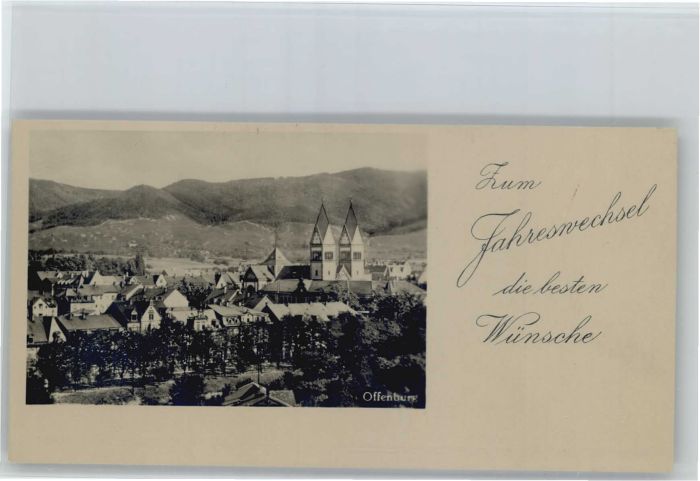 Zum
Jahreswechsel
die besten
Wünsche
Offenburg